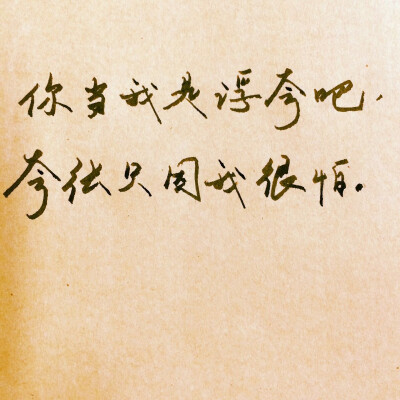 你当我是浮夸吧,
夸张只因我很怕。